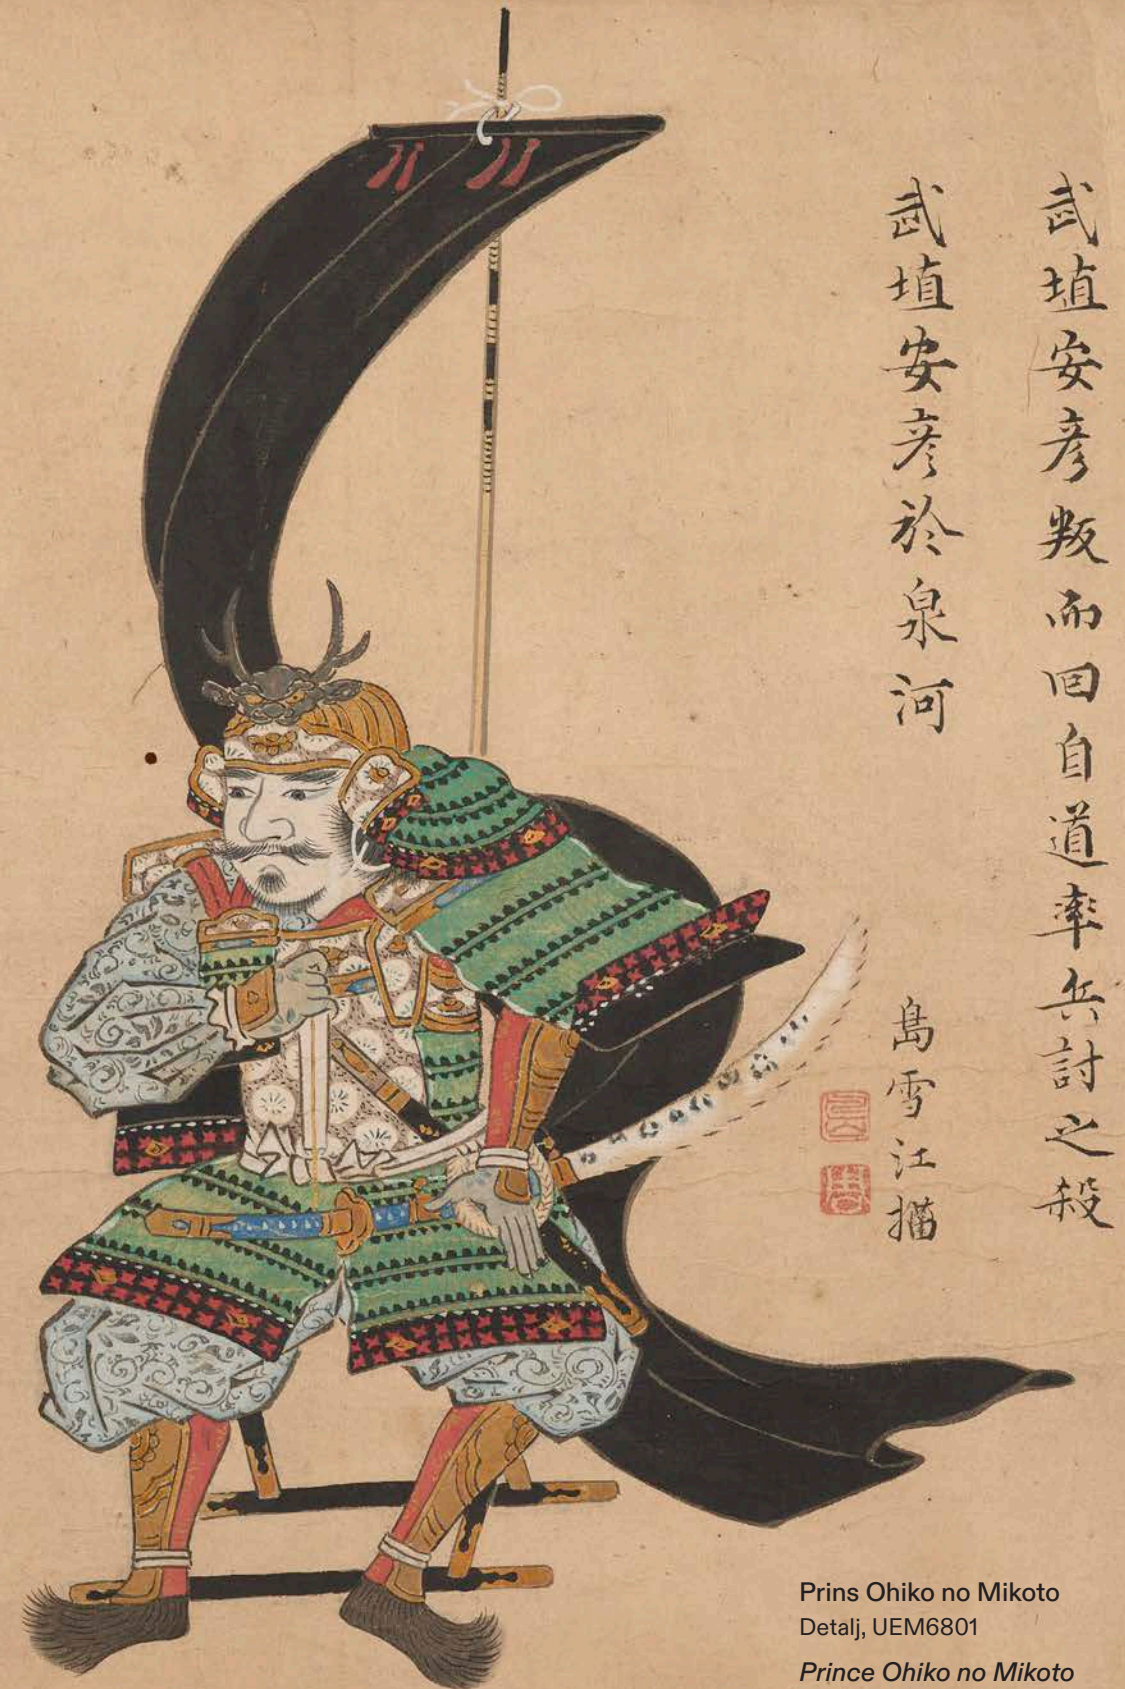 武埴安彦叛而回自道率兵討之殺
武埴安彦於泉河
島雪江描
Prins Ohiko no Mikoto
Detalj, UEM6801
Prince Ohiko no Mikoto